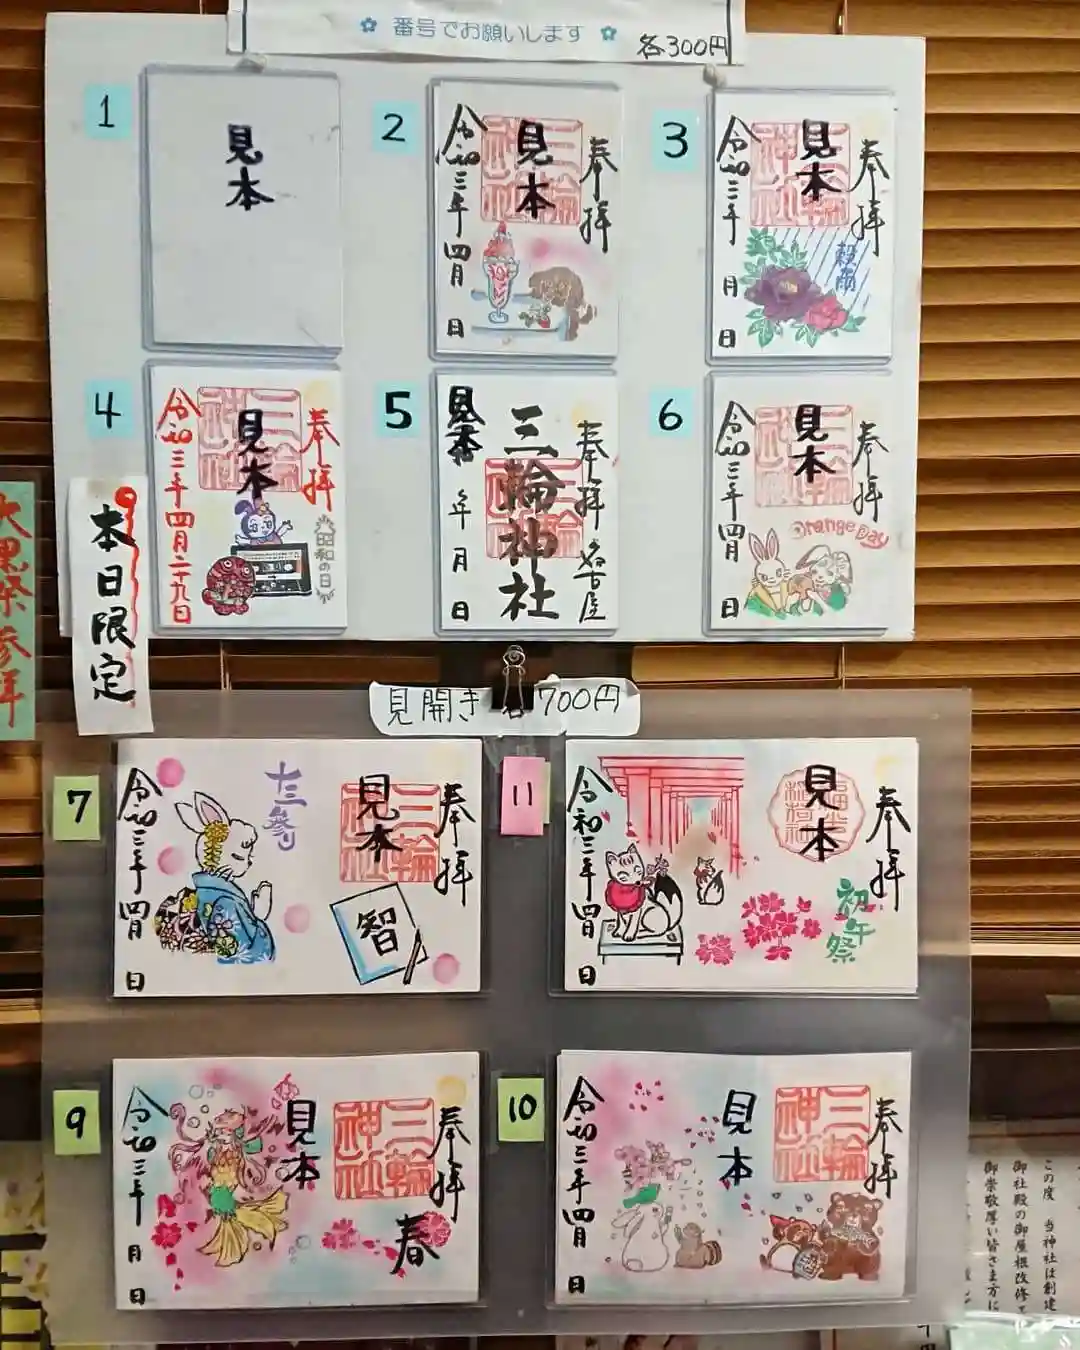 番号でお願いします
各300円
1
見本
2
奉拝
三輪神社
見本
令和三年四月 日
3
奉拝
三輪神社
見本
穀雨
令和三年 月 日
4
奉拝
三輪神社
見本
昭和の日
令和三年四月二十九日
本日限定
5
奉拝 名古屋
三輪神社
見本
年 月 日
6
奉拝
三輪神社
見本
Orange Day
令和三年四月 日
大黒祭参拝
見開き 各700円
7
奉拝
三輪神社
見本
智
十三参り
令和三年四月 日
11
奉拝
見本
初午祭
令和三年四月 日
9
奉拝
春
三輪神社
見本
令和三年 月 日
10
奉拝
三輪神社
見本
令和三年四月 日
この度 当神社は創建
御社殿の御屋根改修
御崇敬厚い皆さま方に